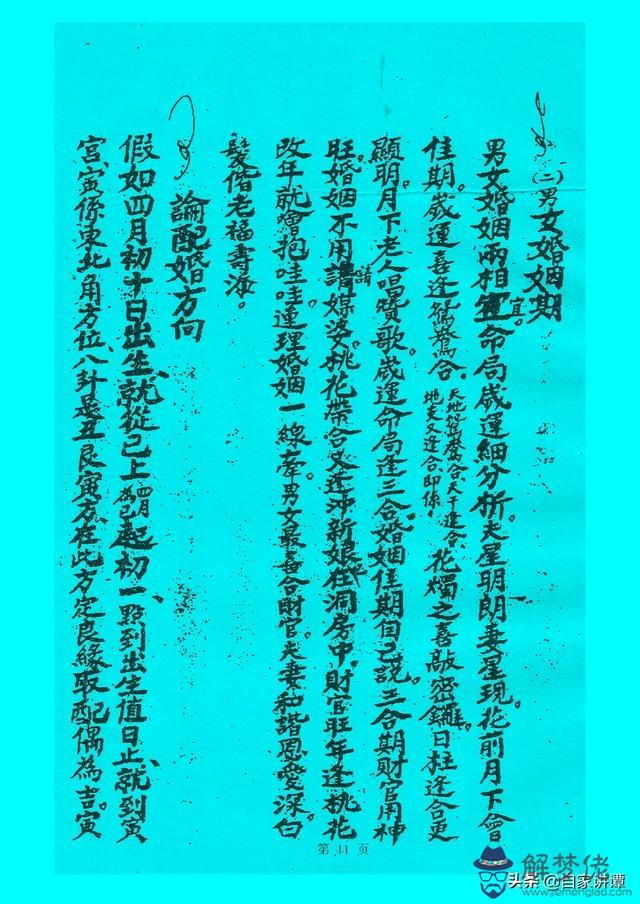 (二)男女婚姻期
男女婚姻兩相宜。命局歲運細分析。夫星明朗妻星現。花前月下會
佳期。歲運喜逢鴛鴦合。天地鴛鴦合天干逢合、地支又逢合、即係。花燭之喜敲密鑼。日柱逢合更
顯明。月下老人唱贊歌。歲運命局逢三合。婚姻佳期自己說。三合期財官用神
旺。婚姻不用請媒婆。桃花帶合又逢沖。新娘在洞房中。財官旺年逢桃花
改年就會抱哇哇。連理婚姻一線牽。男女最喜合財官。夫妻和諧恩愛深。白
髮偕老福壽添。
論配婚方向
假如四月初十日出生、就從已上四月為巳起初一、點到出生值日止、就到寅
宮、寅係東北角方位八卦是丑艮寅方、在此方定良緣取配偶為吉。寅
第 11 页
解梦佬
www.jiemenglao.com
头条 @自家讲谭